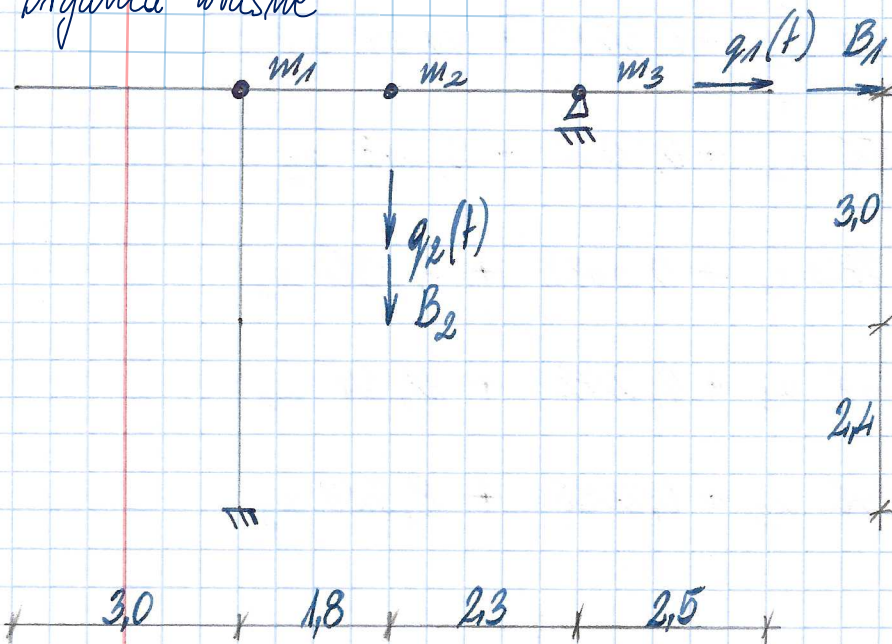 własne
m1 m2 m3 q1(t) B1
3,0
q2(t)
B2
2,4
3,0 1,8 2,3 2,5